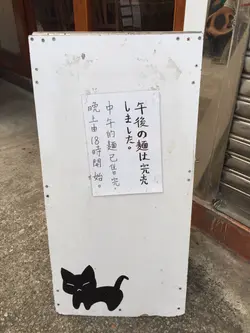 午後の麺は完売
しました。
中午的麵已售完,
晚上由18時開始。